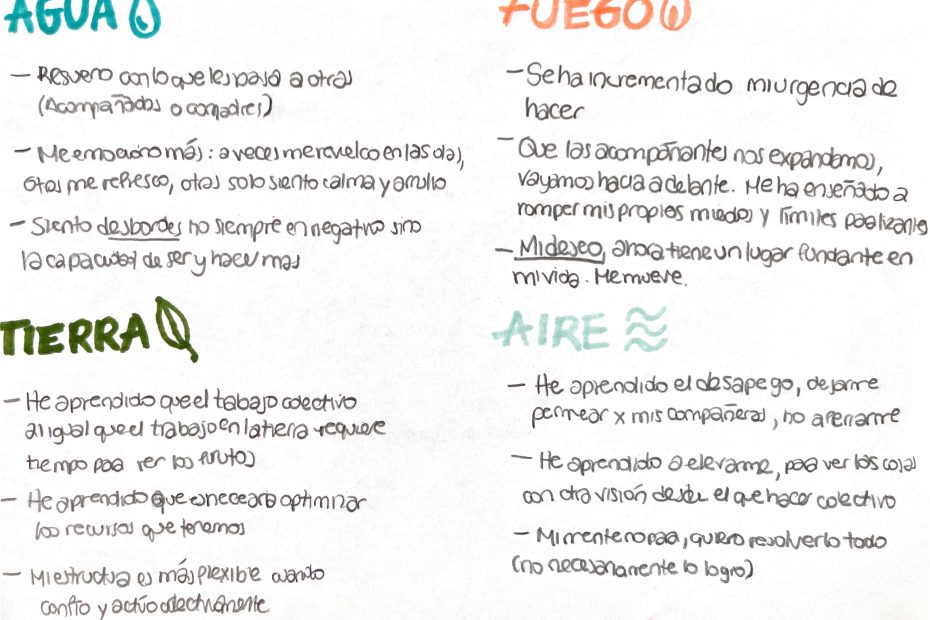 AGUA
— Resueno con lo que les pasa a otras
(Acompañadas o comadres)
— Me emociono más: a veces me revuelco en las olas,
otras me refresco, otras solo siento calma y arrullo
— Siento desbordes no siempre en negativo sino
la capacidad de ser y hacer mas
FUEGO
— Se ha incrementado mi urgencia de
hacer
— Que las acompañantes nos expandamos,
vayamos hacia adelante. Me ha enseñado a
romper mis propios miedos y límites paralizantes
— Mi deseo, ahora tiene un lugar fundante en
mi vida. Me mueve.
TIERRA
— He aprendido que el trabajo colectivo
al igual que el trabajo en la tierra requiere
tiempo para ver los frutos
— He aprendido que es necesario optimizar
los recursos que tenemos
— Mi estructura es más flexible cuando
confío y actúo colectivamente
AIRE
— He aprendido el desapego, dejarme
permear x mis compañeras, no aferrarme
— He aprendido a elevarme, para ver las cosas
con otra visión desde el que hacer colectivo
— Mi mente no para, quiero resolverlo todo
(no necesariamente lo logro)